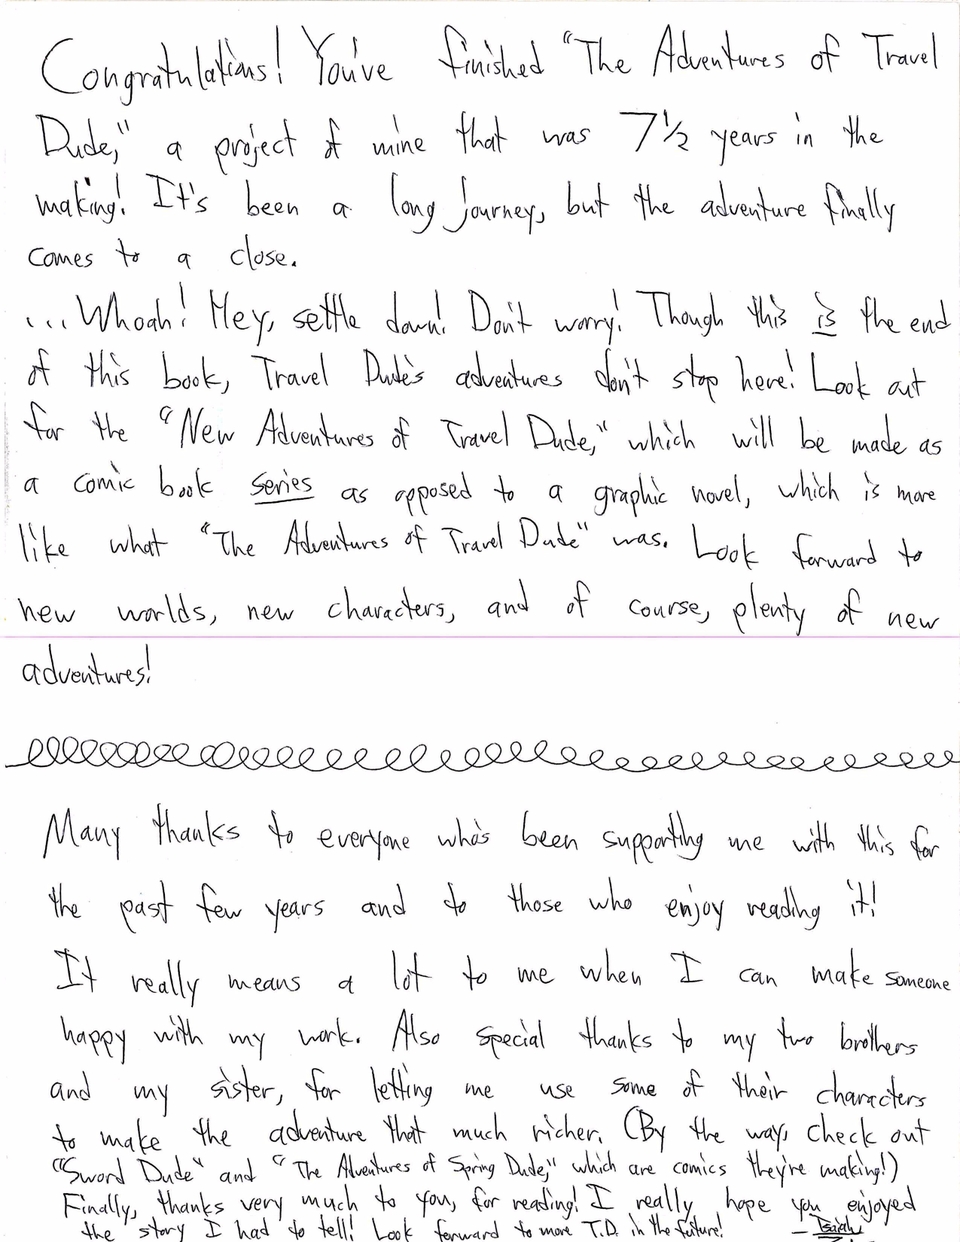 Congratulations! You've finished "The Adventures of Travel
Dude," a project of mine that was 7 1/2 years in the
making! It's been a long journey, but the adventure finally
comes to a close.
...Whoah! Hey, settle down! Don't worry! Though this is the end
of this book, Travel Dude's adventures don't stop here! Look out
for the "New Adventures of Travel Dude," which will be made as
a comic book series as opposed to a graphic novel, which is more
like what "The Adventures of Travel Dude" was. Look forward to
new worlds, new characters, and of course, plenty of new
adventures!
Many thanks to everyone who's been supporting me with this for
the past few years and to those who enjoy reading it!
It really means a lot to me when I can make someone
happy with my work. Also special thanks to my two brothers
and my sister, for letting me use some of their characters
to make the adventure that much richer. (By the way, check out
"Sword Dude" and "The Adventures of Spring Dude," which are comics they're making!)
Finally, thanks very much to you, for reading! I really hope you enjoyed
the story I had to tell! Look forward to more T.D. in the future! —